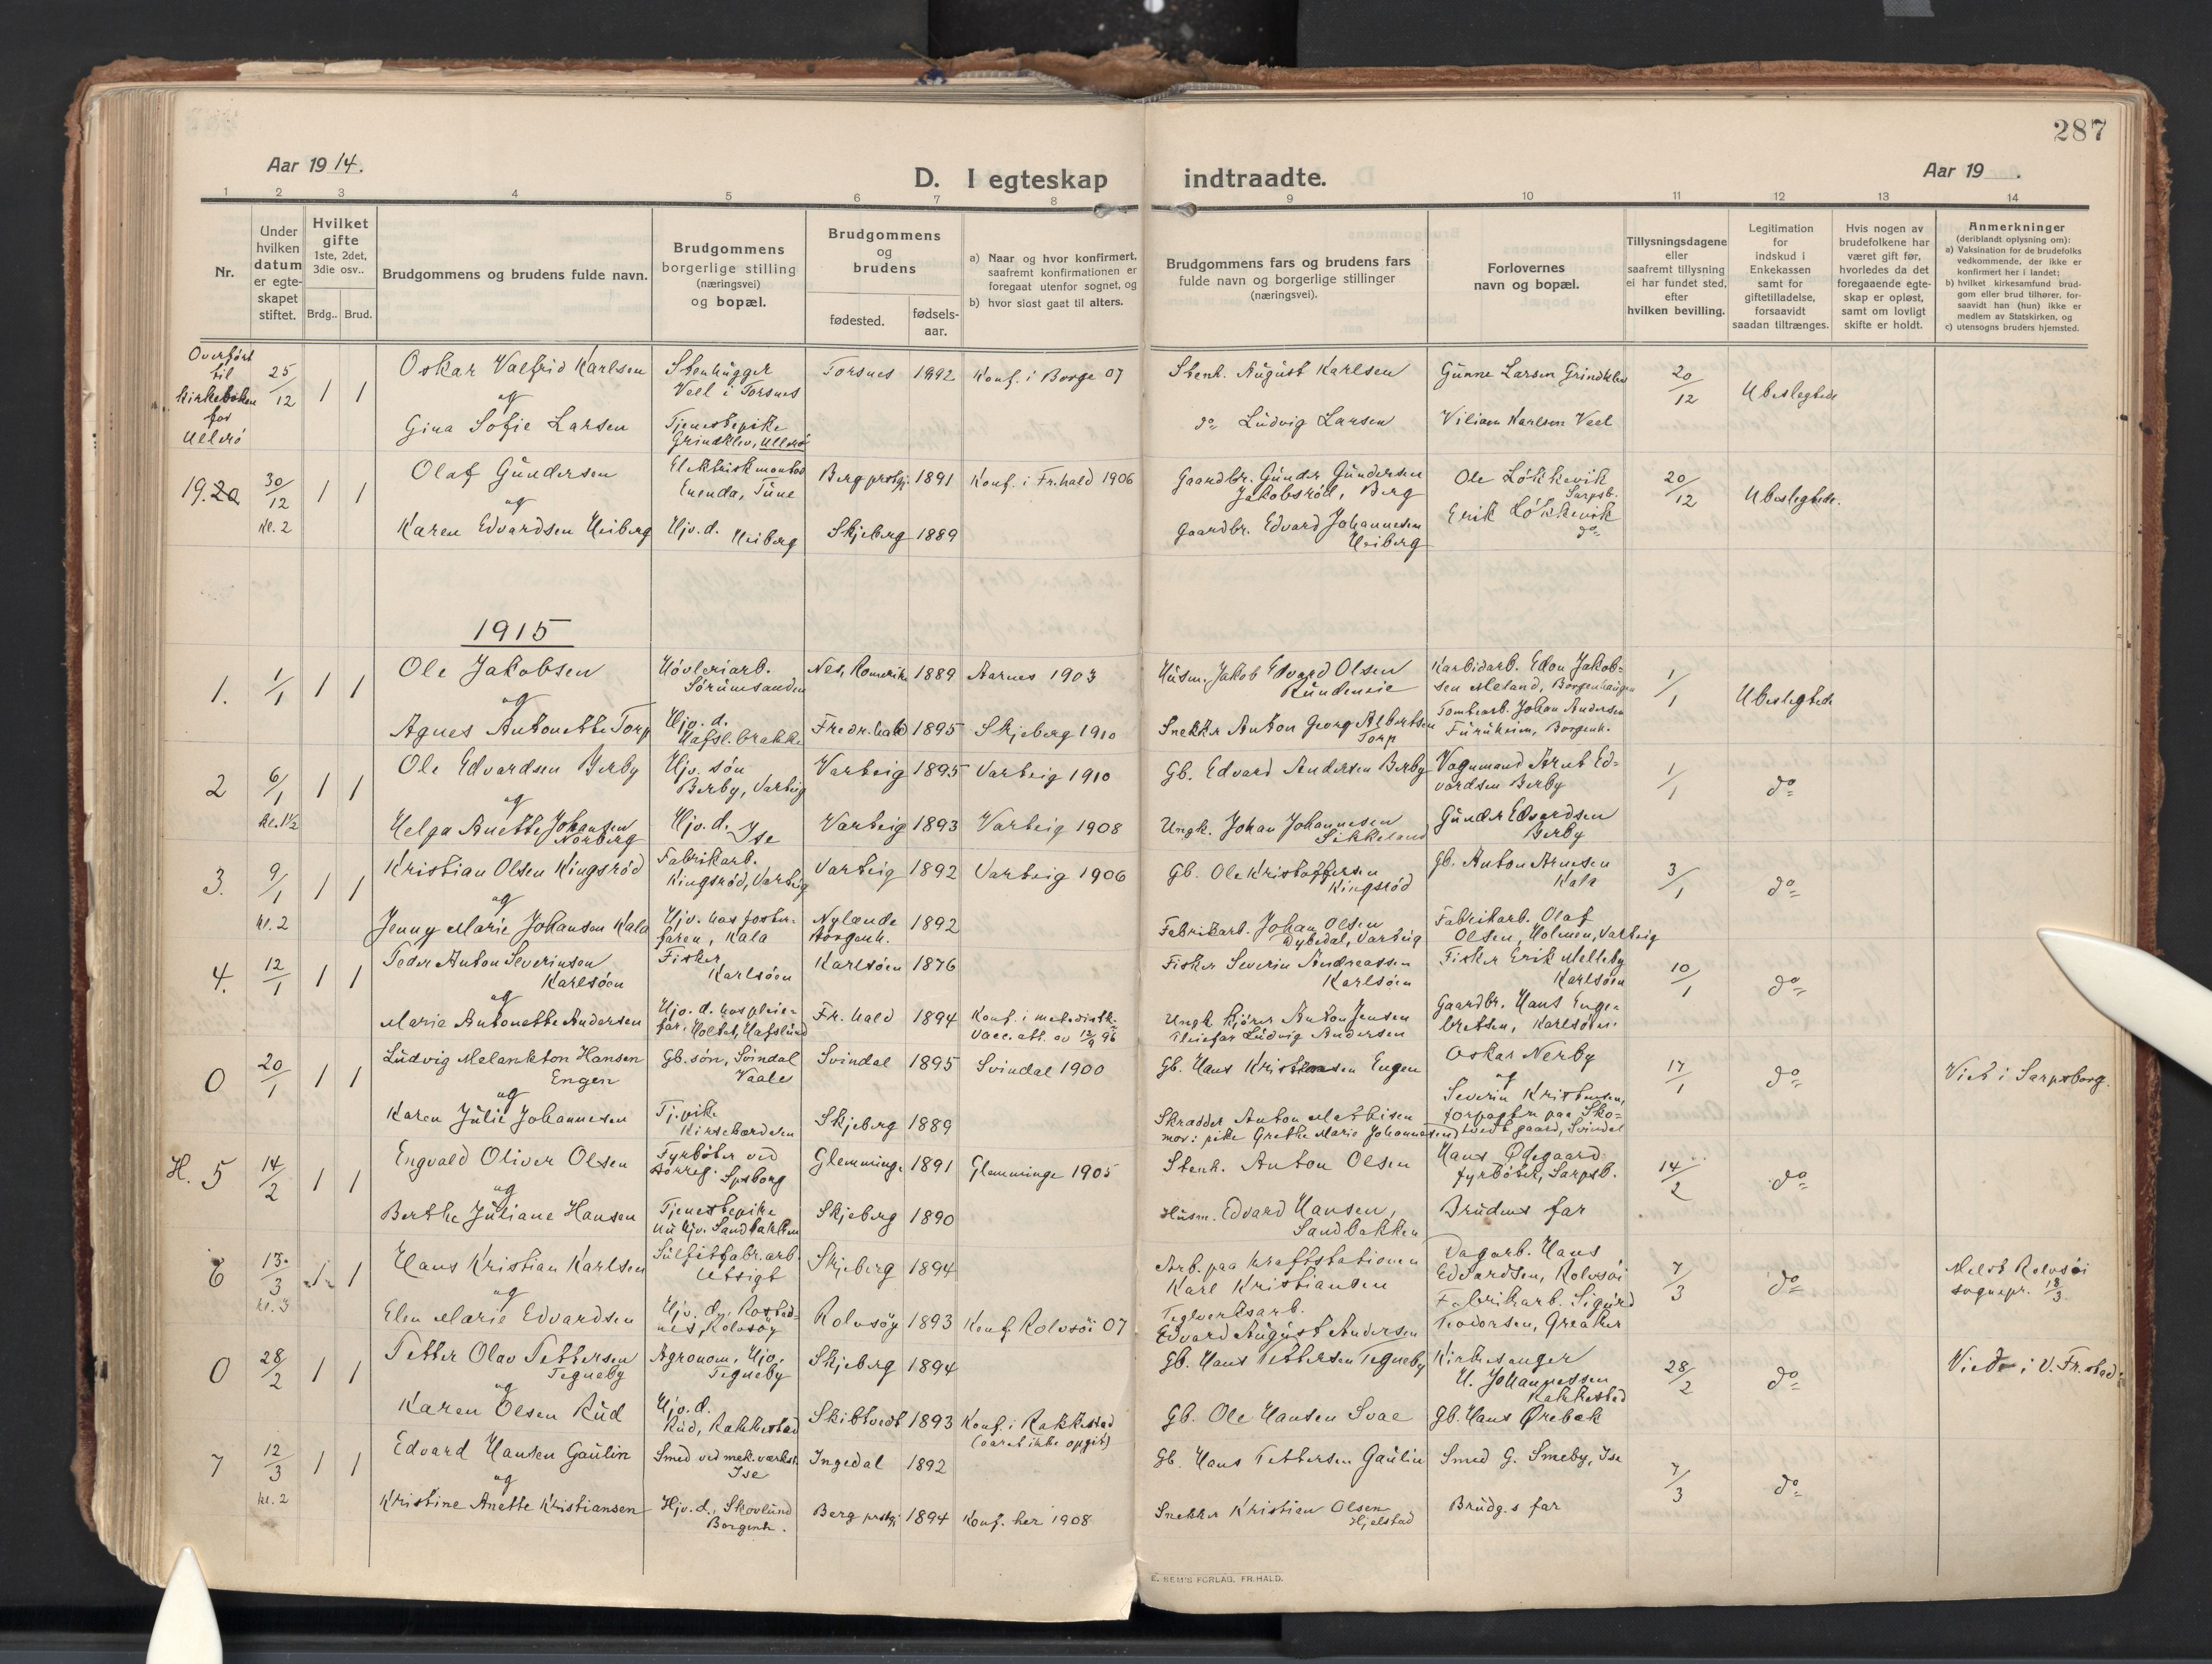 287
Aar 19 14.
D. I egteskap indtraadte.
Aar 19 .
1 2 3 4 5 6 7 8 9 10 11 12 13 14
Nr.
Under hvilken datum er egte-skapet stiftet.
Hvilket gifte 1ste, 2det, 3die osv..
Brdg.. Brud.
Brudgommens og brudens fulde navn.
Brudgommens borgerlige stilling (næringsvei) og bopæl.
Brudgommens og brudens
fødested.
fødsels-aar.
a) Naar og hvor konfirmert, saafremt konfirmationen er foregaat utenfor sognet, og
b) hvor sidst gaat til alters.
Brudgommens fars og brudens fars fulde navn og borgerlige stillinger (næringsvei).
Forlovernes navn og bopæl.
Tillysningsdagene eller saafremt tillysning ei har fundet sted, efter hvilken bevilling.
Legitimation for indskud i Enkekassen samt for giftetilladelse, forsaavidt saadan tiltrænges.
Hvis nogen av brudefolkene har været gift før, hvorledes da det foregaaende egte-skap er opløst, samt om lovligt skifte er holdt.
Anmerkninger (deriblandt oplysning om):
a) Vaksination for de brudefolks vedkommende, der ikke er konfirmert her i landet;
b) hvilket kirkesamfund brud-gom eller brud tilhører, for-saavidt han (hun) ikke er medlem av Statskirken, og
c) utensogns bruders hjemsted.
Overført til kirkeboken for Ullerø
25/12 1 1 Oskar Valfrid Karlsen Stenhugger Veel i Torsnes Torsnes 1892 Konf. i Borge 07 Stenh. August Karlsen Gunne Larsen Grindklev 20/12 Ubeslegtede
og
Gina Sofie Larsen Tjenestepike Grindklev, Ullerø do Ludvig Larsen Viliam Karlsen Veel
19. 20 30/12 kl. 2 1 1 Olaf Gundersen Elektriskmontør Enenda, Tune Berg prstgj. 1891 Konf. i Fr.hald 1906 Gaardbr. Gunder Gundersen Jakobsrød, Berg Ole Løkkevik Sarpsb. 20/12 Ubeslegtede.
og
Karen Edvardsen Heiberg Hjv. d. Heiberg Skjeberg 1889 Gaardbr. Edvard Johannesen Heiberg Erik Løkkevik do
1915
1. 1/1 1 1 Ole Jakobsen Høvleriarb. Sørumsanden Nes, Romerike 1889 Aarnes 1903 Husm. Jakob Edvard Olsen Rundeneie Karbidarb. Edon Jakob-sen Meland, Borgenhaugen 1/1 Ubeslegtede
og
Agnes Antonette Torp Hjv. d. Hafsl. brakke Fredr.hald 1895 Skjeberg 1910 Snekker Anton Georg Albertsen Torp Tomtearb. Johan Andersen Furuheim, Borgenh.
2 6/1 kl. 1½ 1 1 Ole Edvardsen Berby Hjv. søn Berby, Varteig Varteig 1895 Varteig 1910 Gb. Edvard Andersen Berby Vognmand Arnt Ed-vardsen Berby 1/1 do
og
Helga Anette Johansen Norberg Hjv. d. Ise Varteig 1893 Varteig 1908 Ungk. Johan Johannesen Sikkeland Gunder Edvardsen Berby
3. 9/1 kl. 2 1 1 Kristian Olsen Kingsrød Fabrikarb. Kingsrød, Varteig Varteig 1892 Varteig 1906 Gb. Ole Kristoffersen Kingsrød Gb. Anton Arnesen Kala 3/1 do
og
Jenny Marie Johansen Kala Hjv. hos foster-faren, Kala Nylænde Borgenh. 1892 Fabrikarb. Johan Olsen Dybedal, Varteig Fabrikarb. Olaf Olsen, Holmen, Varteig
4. 12/1 1 1 Peder Anton Severinsen Karlsøen Fisker Karlsøen Karlsøen 1876 Fisker Severin Andreassen Karlsøen Fisker Erik Melleby Karlsøen 10/1 do
og
Marie Antonette Andersen Hjv. d. hos pleie-far, Holtet, Hafslund Fr. hald 1894 Konf. i metodistk. Vacc. att. av 12/9 96 Ungk. kjører Anton Jensen Pleiefar Ludvig Andersen Gaardbr. Hans Enge-bretsen, Karlsøen
0 20/1 1 1 Ludvig Melankton Hansen Engen Gb. søn, Svindal Vaaler Svindal 1895 Svindal 1900 Gb. Hans Kristensen Engen Oskar Nerby 17/1 do Viet i Sarpsborg.
og
Karen Julie Johannesen Tj. pike Kirsebærdalen Skjeberg 1889 Skrædder Anton Mathisen mor: pike Grethe Marie Johannesen og Severin Kristensen, forpagter paa Sko-tvedt gaard, Svindal
H. 5 14/2 1 1 Engvald Oliver Olsen Fyrbøter ved Borreg. Spsborg Glemminge 1891 Glemminge 1905 Stenh. Anton Olsen Hans Ødegaard fyrbøter, Sarpsb. 14/2 do
og
Berthe Juliane Hansen Tjenestepike nu hjv. Sandbakken Skjeberg 1890 Husm. Edvard Hansen, Sandbakken Brudens far
6 13/3 kl. 3 1 1 Hans Kristian Karlsen Sulfitfabr. arb. Utsigt Skjeberg 1894 Arb. paa kraftstationen Karl Kristiansen Dagarb. Hans Edvardsen, Rolvsøi 7/3 do Meldt Rolvsøi sognepr. 18/3
og
Elen Marie Edvardsen Hjv. d., Rostad-nes, Rolvsøy Rolvsøy 1893 Konf. Rolvsøi 07 Teglverksarb. Edvard August Andersen Fabrikarb. Sigurd Teodorsen, Greaker
0 28/2 1 1 Petter Olav Pettersen Tegneby Agronom, Hjv. Tegneby Skjeberg 1894 Gb. Hans Pettersen Tegneby Kirkesanger H. Johannessen Rakkestad 28/2 do Viet i V. Fr.stad
og
Karen Olsen Rud Hjv. d. Rud, Rakkestad Skibtvedt 1893 Konf. i Rakkestad (aaret ikke opgit) Gb. Ole Hansen Svae Gb. Hans Ørebæk
7 12/3 kl. 2 1 1 Edvard Hansen Gaulin Smed ved mek. værkst. Ise Ingedal 1892 Gb. Hans Pettersen Gaulin Smed G. Smeby, Ise 7/3 do
og
Kristine Anette Kristiansen Hjv. d., Skovlund Borgenh. Berg prstgj. 1894 Konf. her 1908 Snekker Kristian Olsen Hjelstad Brudg.s far
E. SEM'S FORLAG, FR.HALD.